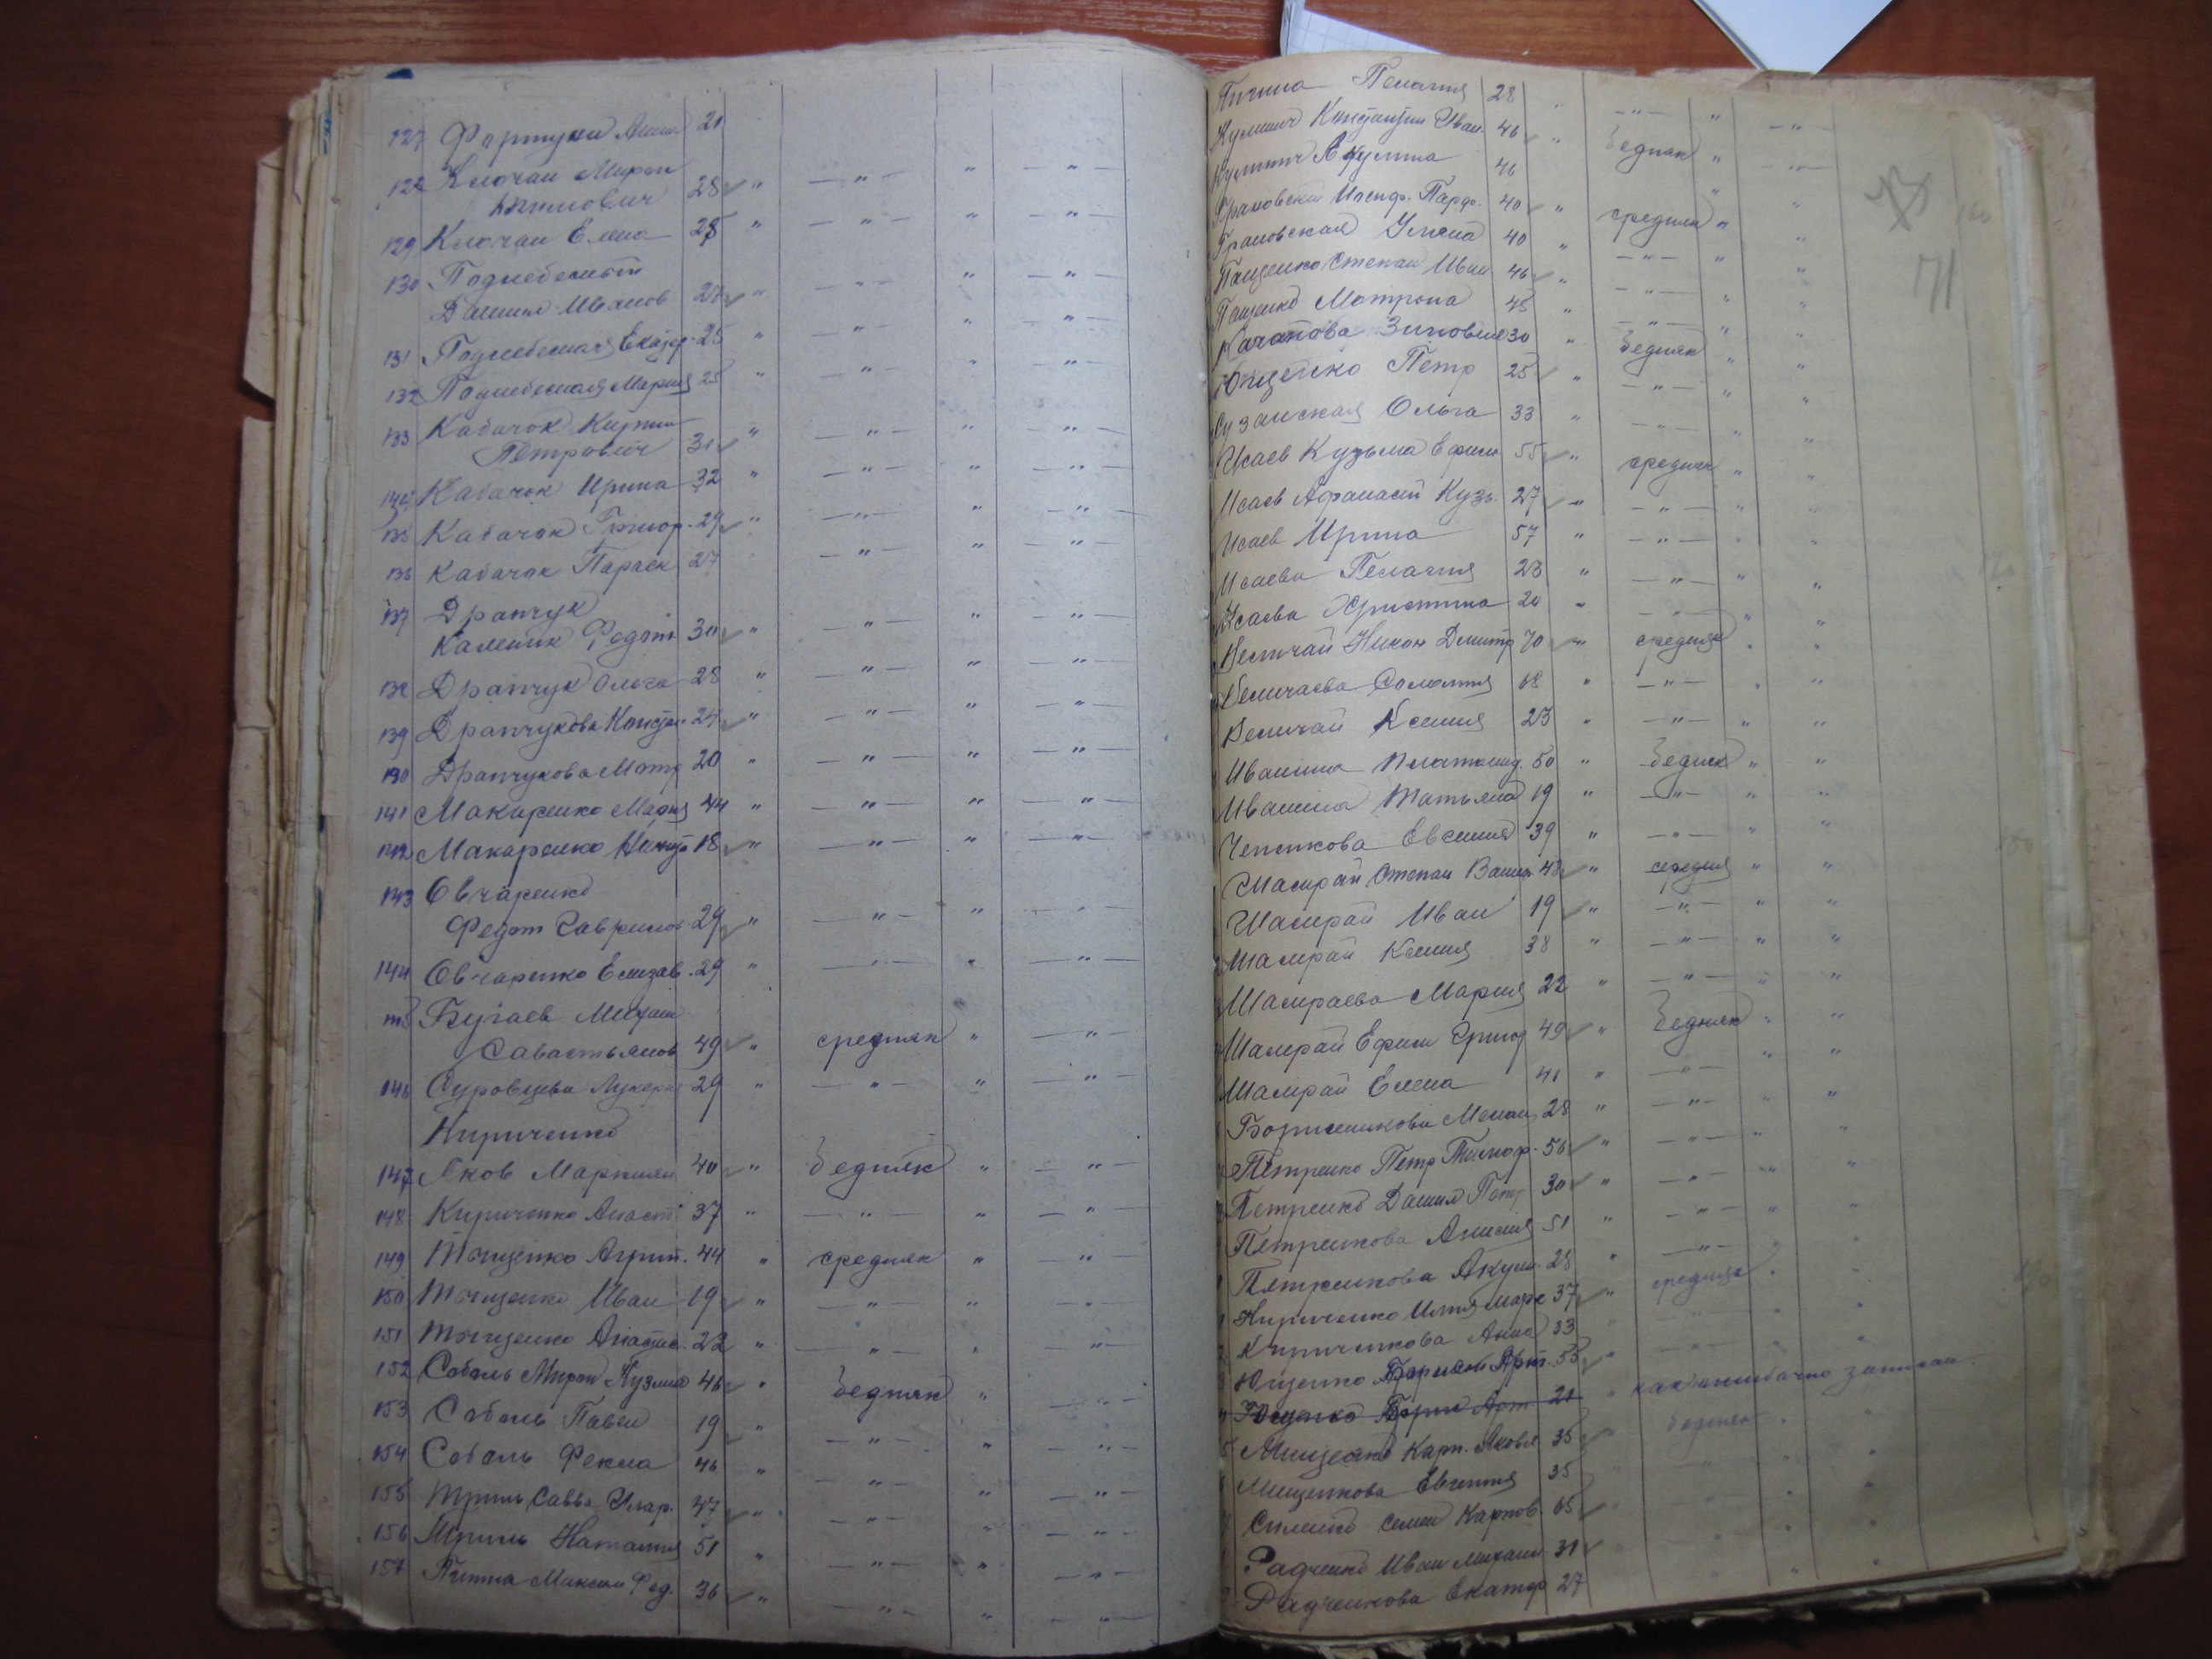 127 Фортуна Анна 21
128 Клочан Мирон
Акимович 28 " — " — " — " —
129 Клочан Елена 28 " — " — " — " —
130 Поднебесный
Даниил Иванов 27 " — " — " — " —
131 Поднебесная Екатер. 25 " — " — " — " —
132 Поднебесная Мария 25 " — " — " — " —
133 Кабачок Кирилл
Петрович 31 " — " — " — " —
134 Кабачок Ирина 32 " — " — " — " —
135 Кабачок Григор. 29 " — " — " — " —
136 Кабачок Параск 27 — " — " — " —
137 Драпчук
Каленик Федот 30 " — " — " — " —
138 Драпчук Ольга 28 " — " — " — " —
139 Драпчукова Констан 24 " — " — " — " —
130 Драпчукова Мотр 20 " — " — " — " —
141 Макаренко Мария 44 " — " — " — " —
142 Макаренко 18 " — " — " — " —
143 Овчаренко
Федот Гаврилов 29 " — " — " — " —
144 Овчаренко Елизав. 29 " — " — " — " —
145 Бугаев Михаил
Савастьянов 49 " средняк " — " —
146 Суровцева Лукерия 29 " — " — " — " —
Кириченко
147 Яков Маркиян 40 " бедняк " — " —
148 Кириченко Анаст. 37 " — " — " — " —
149 Тощенко Агрип. 44 " средняк " — " —
150 Тощенко Иван 19 " — " — " — " —
151 Тощенко Анастас. 22 " — " — " — " —
152 Соболь Мирон Кузмич 46 " бедняк " — " —
153 Соболь Павел 19 " — " — " — " —
154 Соболь Фекла 46 " — " — " — " —
155 Савва Илар. 47 " — " — " — " —
156 Наталия 51 " — " — " — " —
157 Максим Фед. 36 " — " — " — " —
Пелагия 28 " — " — " — " —
Кулинич Константин Иван. 46 " бедняк " — " —
Кулинич Акулина 46 " "
Грановский Иосиф. Парф. 40 " средняк " "
Грановская Ульяна 40 " — " — " "
Пащенко Степан Иван 46 " — " — " "
Пащенко Матрона 45 " — " — " "
Качанова Зиновия 30 " бедняк " "
Ющенко Петр 25 " — " — " "
Сузанская Ольга 33 " — " — " "
Исаев Кузьма Ефим 55 " средняк " "
Исаев Афанасий Кузь. 27 " — " — " "
Исаев Ирина 57 " — " — " "
Исаева Пелагия 23 " — " — " "
Исаева Христина 20 " — " — " "
Величай Никон Дмитр 70 " средняк " "
Величаева Соломия 68 " — " — " "
Величай Ксения 23 " — " — " "
Иванина Платонид. 50 " бедняк " "
Иванина Татьяна 19 " — " — " "
Чепикова Евгения 39 " — " — " "
Шамрай Степан Васил 48 " средняк " "
Шамрай Иван 19 " — " — " "
Шамрай Ксения 38 " — " — " "
Шамраева Мария 22 " — " — " "
Шамрай Ефим Григор 49 " бедняк " "
Шамрай Елена 41 " — " — " "
28 " — " — " "
Петренко Петр Тимоф. 56 " — " — " "
Петренко Даниил Петр 30 " — " — " "
Петренкова Анисия 51 " — " — " "
Петренкова Акул. 28 " — " — " "
Кириченко Илья Марк 37 " средняк " "
Кириченкова Анна 33 " — " — " "
Ющенко Борис Арт. 55 "
Ющенко Борис Арт. 21 " как ошибочно записан
Мищенко Карп. Яковл 35 " бедняк " "
Мищенкова Евгения 35 " — " — " "
Семен Карпов. 65 " — " — " "
Радченко Иван Михаил 31 " — " — " "
Радченкова Екатер 27
71